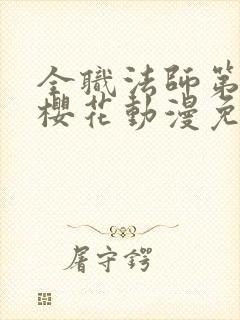 全職法師第
櫻花動漫免
屠守鍔